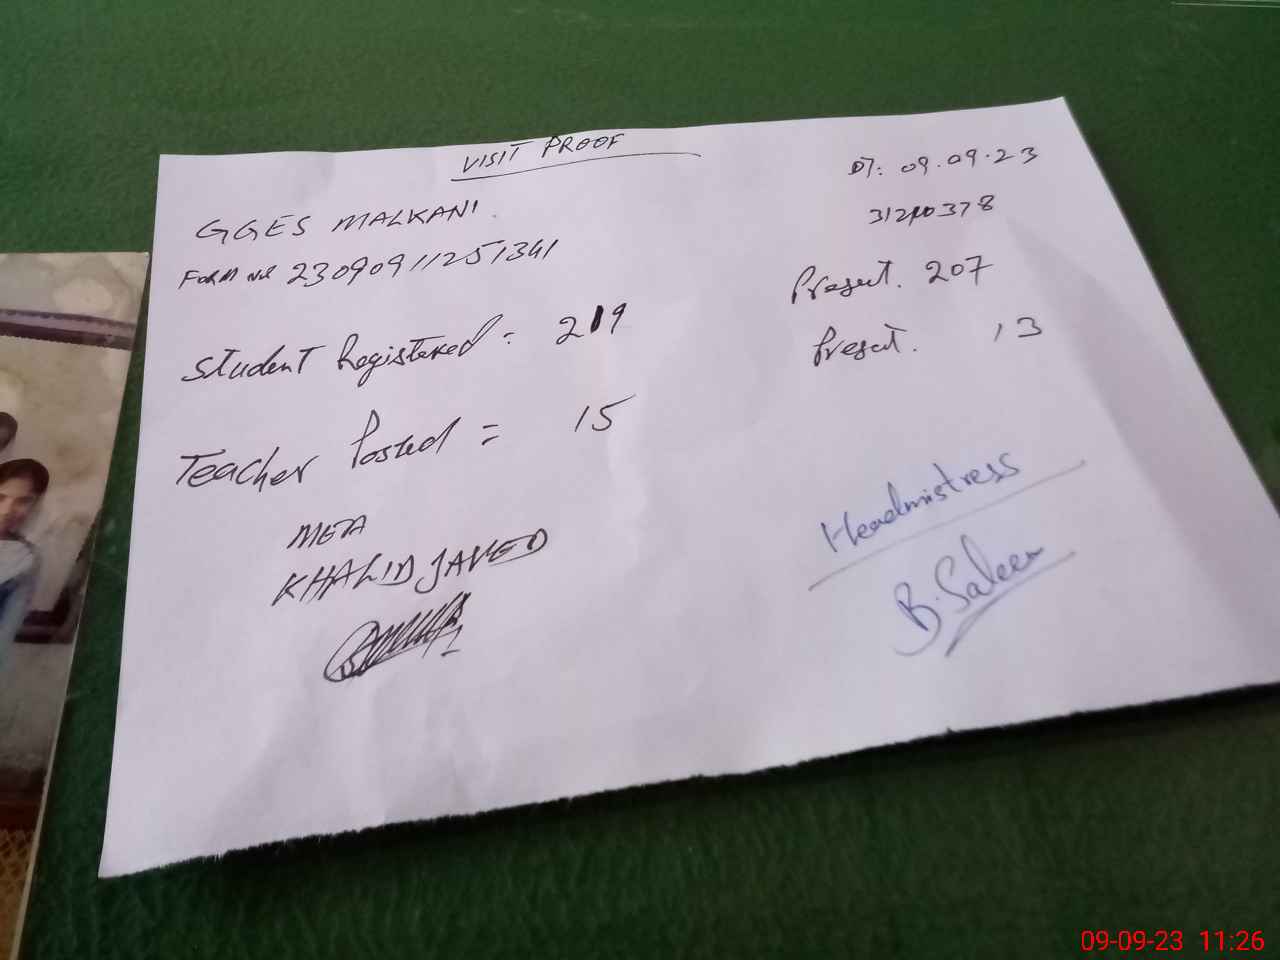 VISIT PROOF
DT: 09.09.23
GGES MALKANI
31210378
FORM NO 23090911251341
Student Registered: 219 Present. 207
Teacher Posted = 15 Present. 13
MEA
KHALID JAVED
Headmistress
B. Saleem
09-09-23 11:26